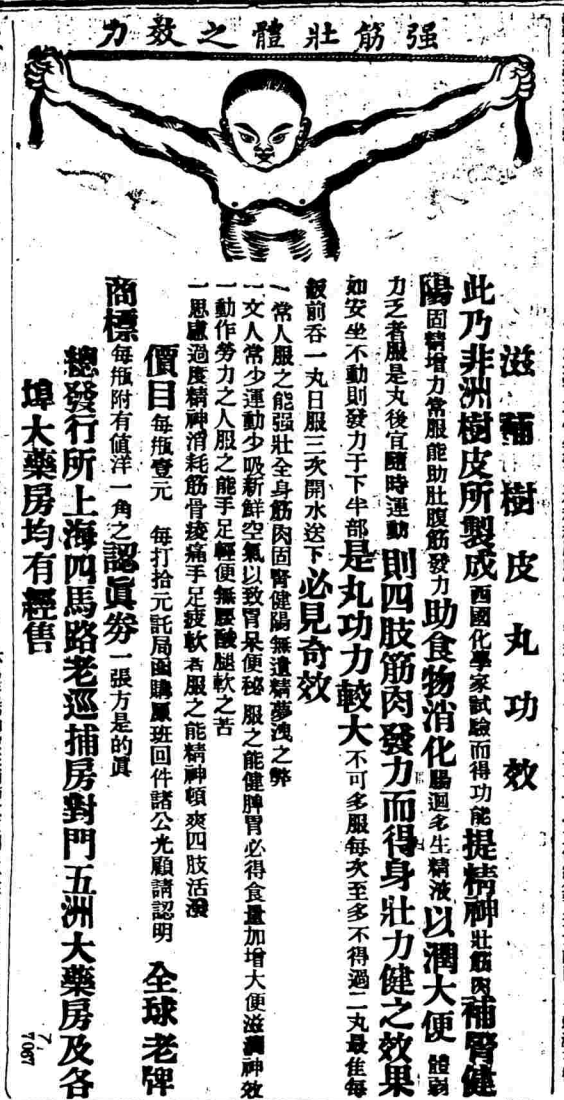 强筋壯體之效力
滋補樹皮丸功效
此乃非洲樹皮所製成西國化學家試驗而得功能提精神壯筋肉補腎健
陽固精增力常服能助肚腹筋發力助食物消化腸迴多生精液以潤大便體弱
力乏者服是丸後宜隨時運動則四肢筋肉發力而得身壯力健之效果
如安坐不動則發力于下半部是丸功力較大不可多服每次至多不得過二丸最佳每
飯前吞一丸日服三次開水送下必見奇效
一常人服之能强壯全身筋肉固腎健陽無遺精夢洩之弊
一文人常少運動少吸新鮮空氣以致胃呆便秘服之能健脾胃必得食量加增大便滋潤神效
一動作勞力之人服之能手足輕便無腰酸腿軟之苦
一思慮過度精神消耗筋骨痠痛手足疲軟者服之能精神頓爽四肢活潑
價目每瓶壹元 每打拾元託局函購原班回件諸公光顧請認明全球老牌
商標每瓶附有值洋一角之認眞券一張方是的眞
總發行所上海四馬路老巡捕房對門五洲大藥房及各
埠大藥房均有經售
7067